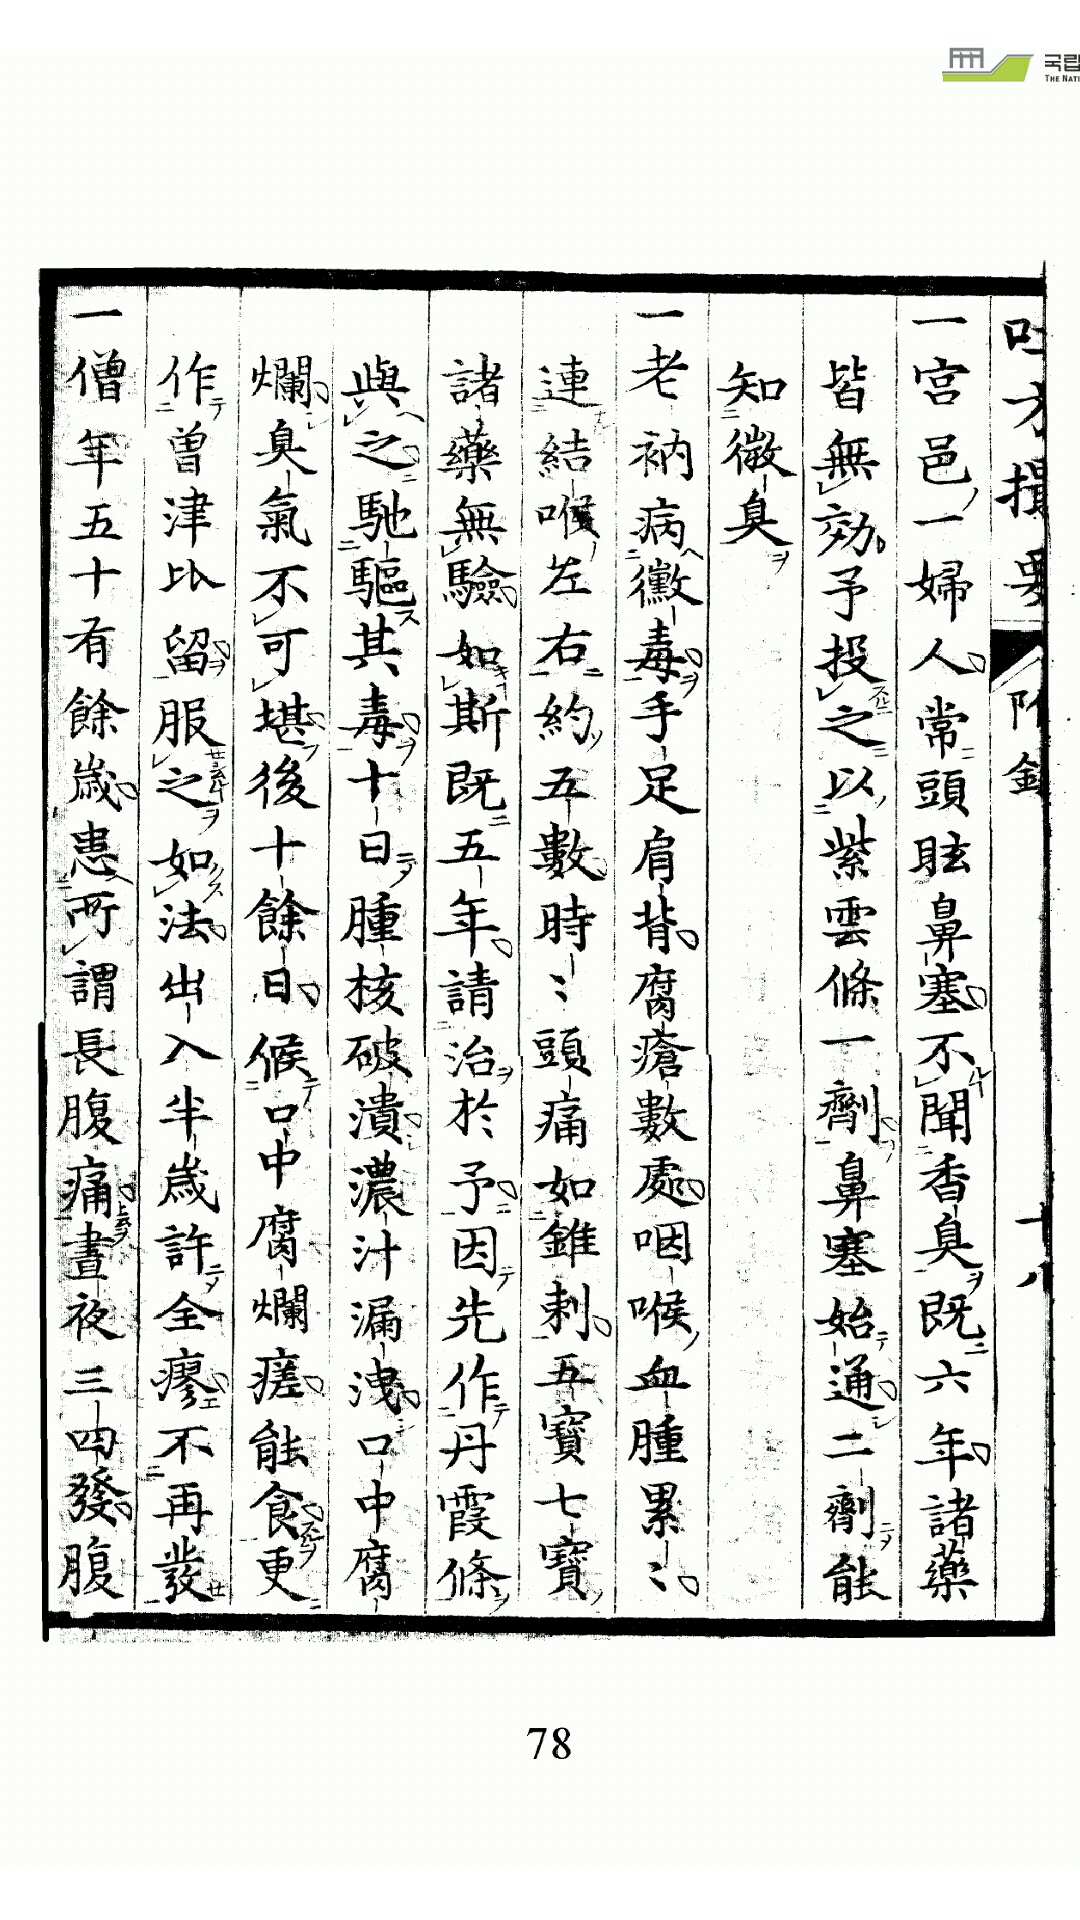 国립
THE NATI
吐方撮要 附錄 十八
一宮邑一婦人常頭眩鼻塞不聞香臭既六年諸藥
皆無効予投之以紫雲條一劑鼻塞始通二劑能
知微臭
一老衲病黴毒手足肩背腐瘡數處咽喉血腫累〻
連結喉左右約五數時〻頭痛如錐刺五寶七寶
諸藥無驗如斯既五年請治於予因先作丹霞條
與之馳驅其毒十日腫核破潰濃汁漏洩口中腐
爛臭氣不可堪後十餘日候口中腐爛瘥能食更
作曽津比留服之如法出入半歳許全瘳不再發
一僧年五十有餘歳患所謂長腹痛晝夜三四發腹
78